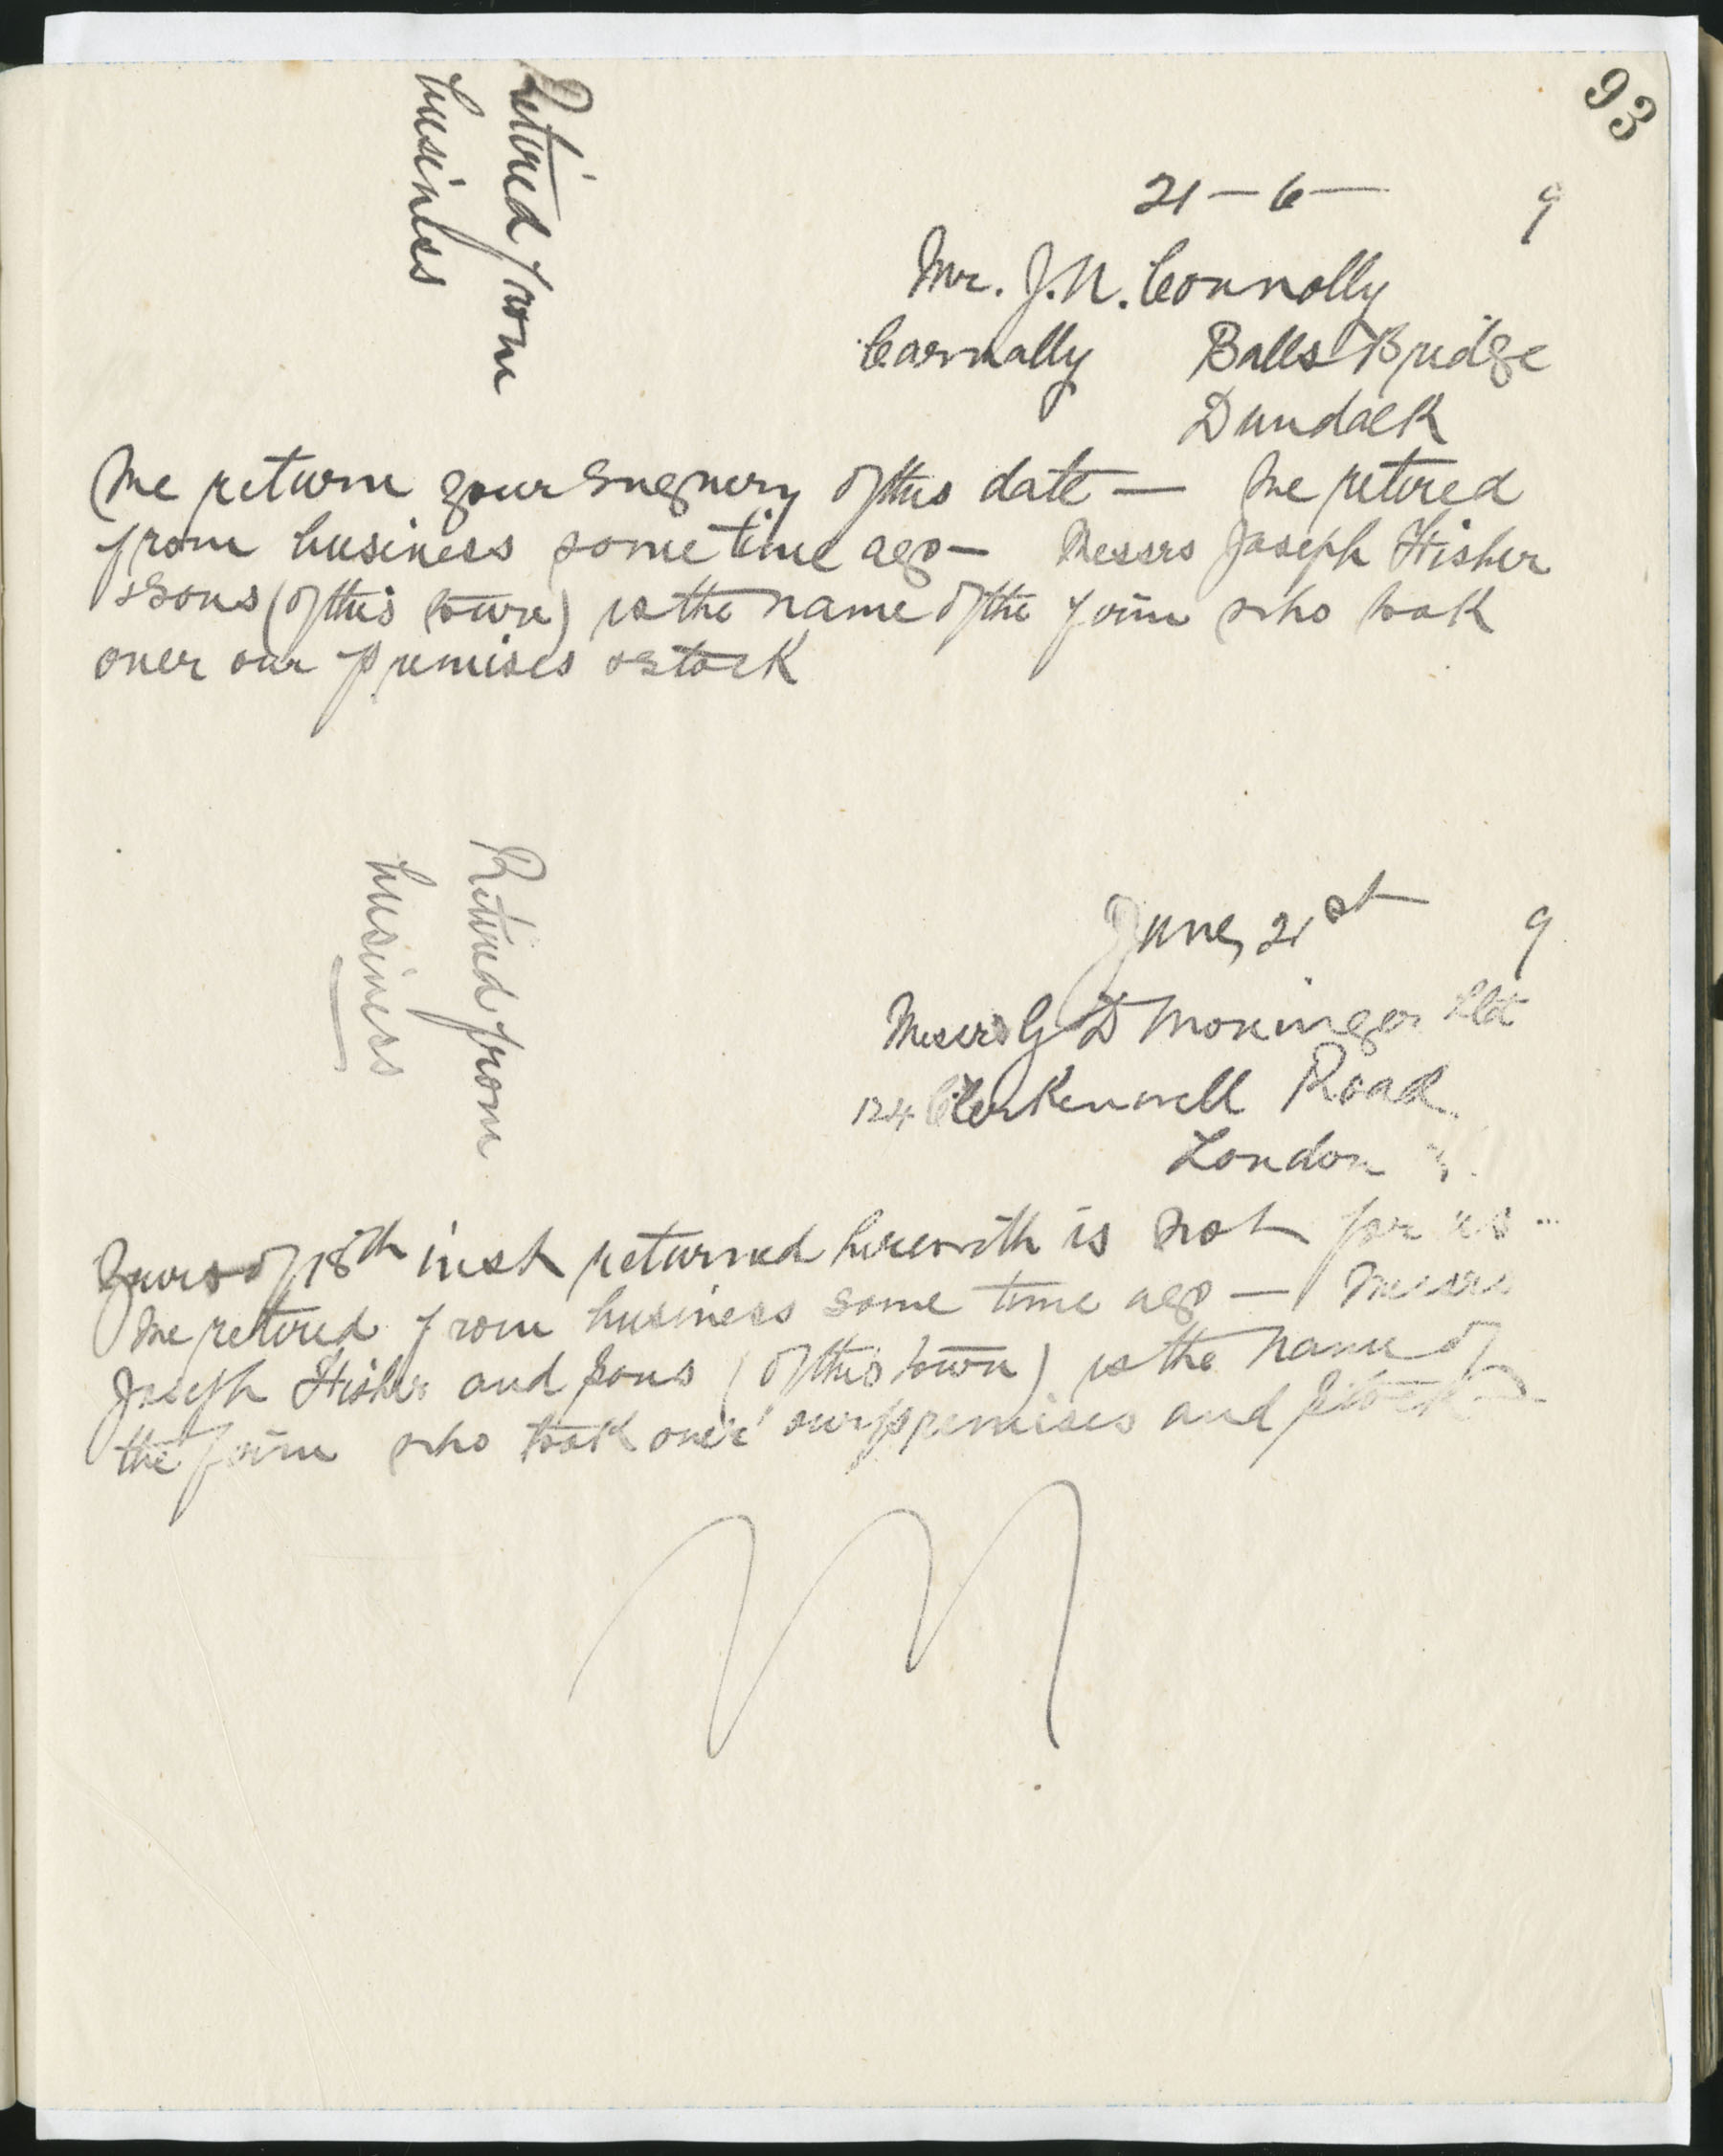 93
Retired from
business
21-6- 9
Mr. J.N. Connolly
Carnally Balls Bridge
Dundalk
We return your Enquiry of this date - We retired
from business some time ago - Messrs Joseph Fisher
& Sons (of this town) is the name of the firm who took
over our premises & stock
Retired from
business
June 21st 9
Messrs G D Ltd
124 Clerkenwell Road
London
Yours of 18th inst returned herewith is not for us
We retired from business some time ago - Messrs
Joseph Fisher and Sons (of this town) is the name of
the firm who took over our premises and stock